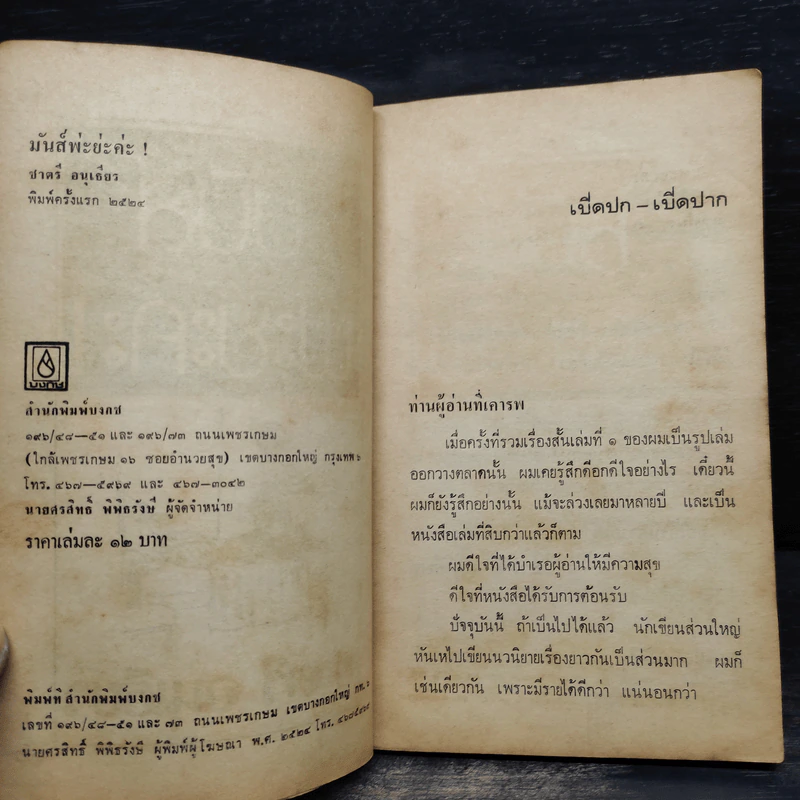 มันส์พ่ะย่ะค่ะ !
ชาตรี อนุเธียร
พิมพ์ครั้งแรก ๒๕๒๔
บงกช
สำนักพิมพ์บงกช
๑๙๖/๔๘—๕๑ และ ๑๙๖/๗๓ ถนนเพชรเกษม
(ใกล้เพชรเกษม ๑๖ ซอยอำนวยสุข) เขตบางกอกใหญ่ กรุงเทพ ๖
โทร. ๔๖๗—๕๙๖๙ และ ๔๖๗—๓๐๔๒
นายศรสิทธิ์ พิพิธรังษี ผู้จัดจำหน่าย
ราคาเล่มละ ๑๒ บาท
พิมพ์ที่ สำนักพิมพ์บงกช
เลขที่ ๑๙๖/๔๘—๕๑ และ ๗๓ ถนนเพชรเกษม เขตบางกอกใหญ่ กท. ๖
นายศรสิทธิ์ พิพิธรังษี ผู้พิมพ์ผู้โฆษณา พ.ศ. ๒๕๒๔ โทร. ๔๖๗๕๙๖๙
เบิ่ดปก – เบิ่ดปาก
ท่านผู้อ่านที่เคารพ
เมื่อครั้งที่รวมเรื่องสั้นเล่มที่ ๑ ของผมเป็นรูปเล่ม
ออกวางตลาดนั้น ผมเคยรู้สึกดีอกดีใจอย่างไร เดี๋ยวนี้
ผมก็ยังรู้สึกอย่างนั้น แม้จะล่วงเลยมาหลายปี และเป็น
หนังสือเล่มที่สิบกว่าแล้วก็ตาม
ผมดีใจที่ได้บำเรอผู้อ่านให้มีความสุข
ดีใจที่หนังสือได้รับการต้อนรับ
ปัจจุบันนี้ ถ้าเป็นไปได้แล้ว นักเขียนส่วนใหญ่
หันเหไปเขียนนวนิยายเรื่องยาวกันเป็นส่วนมาก ผมก็
เช่นเดียวกัน เพราะมีรายได้ดีกว่า แน่นอนกว่า